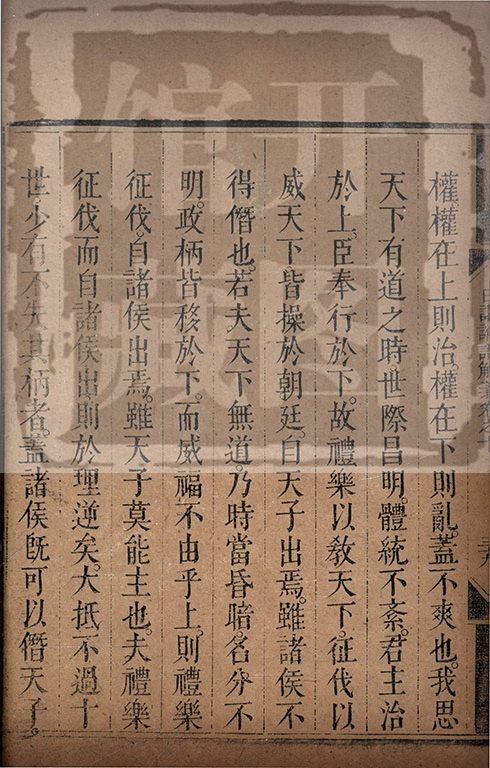 權權在上則治。權在下則亂。蓋不爽也。我思
天下有道之時世際昌明。體統不紊。君主治
於上。臣奉行於下。故禮樂以教天下。征伐以
威天下。皆操於朝廷。自天子出焉。雖諸侯不
得僭也。若夫天下無道。乃時當昏暗。名分不
明。政柄皆移於下。而威福不由乎上。則禮樂
征伐。自諸侯出焉。雖天子莫能主也。夫禮樂
征伐而自諸侯出則於理逆矣。大抵不過十
世少有不失其柄者。蓋諸侯既可以僭天子。